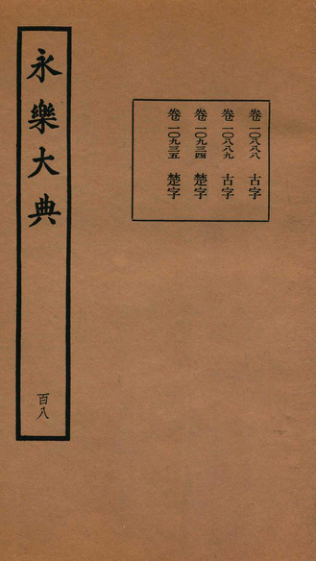 永樂大典
百八
卷一〇八八八 古字
卷一〇八八九 古字
卷一〇九三四 楚字
卷一〇九三五 楚字